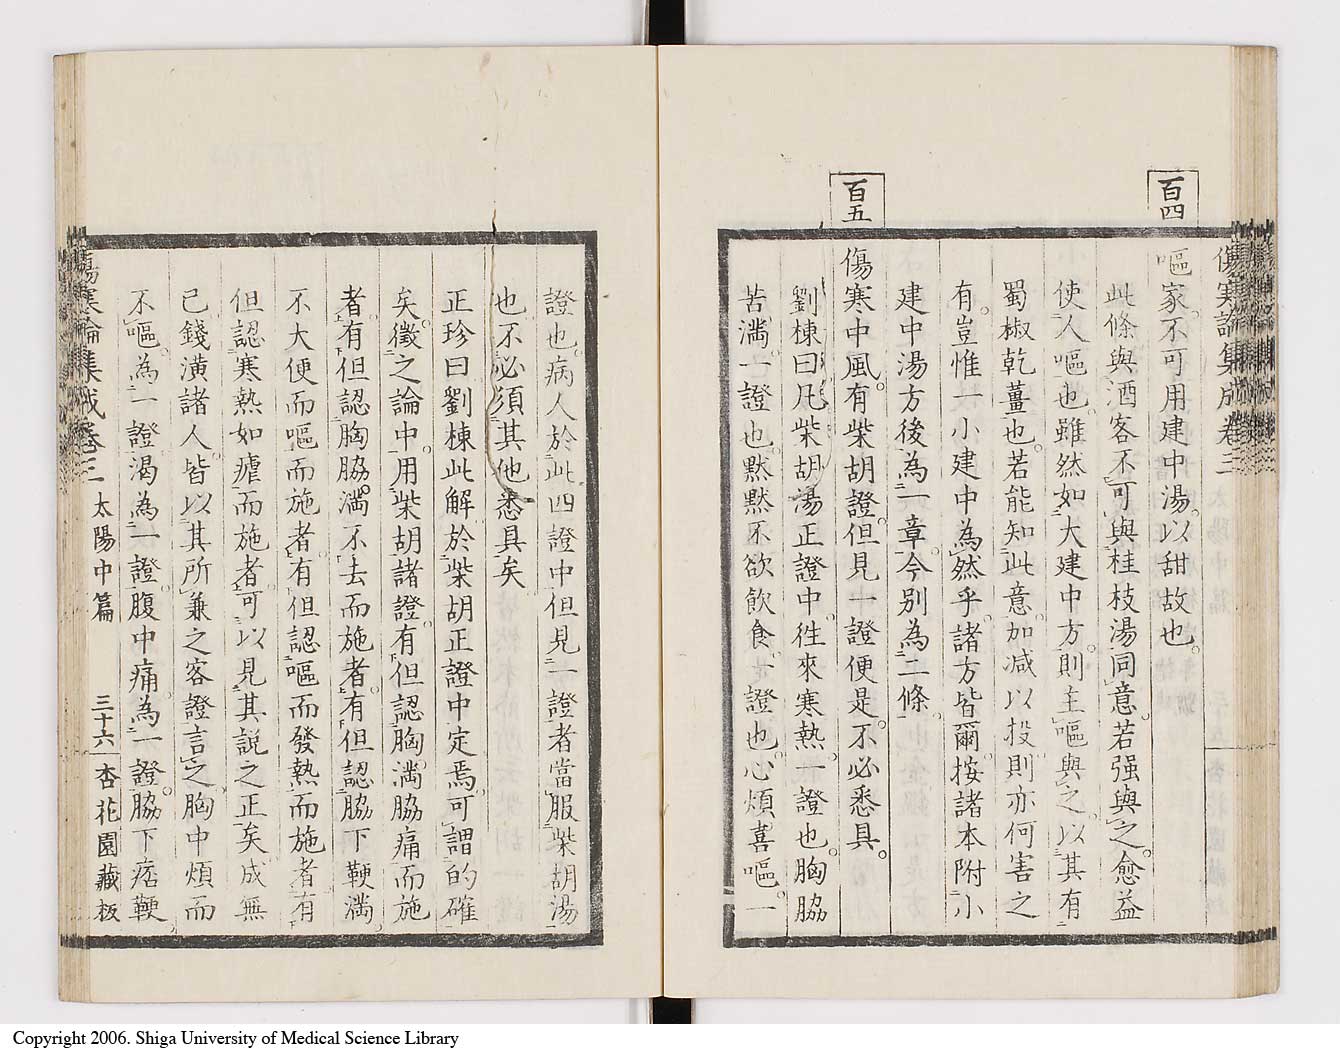 傷寒論集成卷三
百四
嘔家。不可用建中湯。以甜故也。
此條與酒客不可與桂枝湯同意。若强與之。愈益
使人嘔也。雖然如大建中方。則主嘔與之。以其有
蜀椒乾薑也。若能知此意。加減以投則亦何害之
有。豈惟一小建中為然乎。諸方皆爾。按諸本附小
建中湯方後為一章。今別為二條。
百五
傷寒中風。有柴胡證。但見一證便是。不必悉具。
劉棟曰。凡柴胡湯正證中。往來寒熱一證也。胸脇
苦滿一證也。默默不欲飲食一證也。心煩喜嘔。一
證也。病人於此四證中但見一證者。當服柴胡湯
也。不必須其他悉具矣
正珍曰。劉棟此解。於柴胡正證中定焉。可謂的確
矣。徵之論中。用柴胡諸證。有但認胸滿脇痛而施
者。有但認胸脇滿不去而施者。有但認脇下鞕滿
不大便而嘔而施者。有但認嘔而發熱而施者。有
但認寒熱如瘧而施者。可以見其說之正矣。成無
己錢潢諸人。皆以其所兼之客證言之。胸中煩而
不嘔為一證。渴為一證。腹中痛為一證。脇下痞鞕
傷寒論集成卷三 太陽中篇 三十六 杏花園藏板
Copyright 2006. Shiga University of Medical Science Library